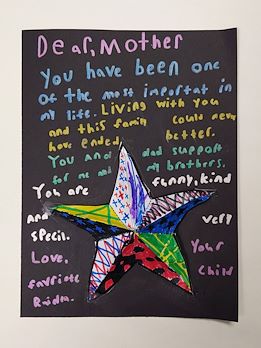 Dear, Mother
You have been one
of the most importat in
my life. Living with you
and this famin could never
have ended better.
You and dad support
for me and my brothers.
You are funny, kind
and very
specil.
Love, Your
favriote Child